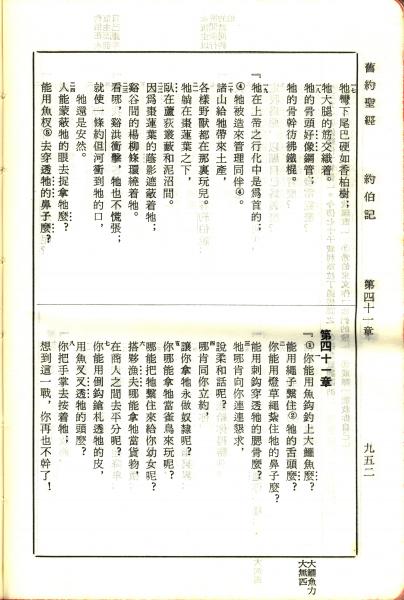 舊約聖經　約伯記　第四十一章　九五二
十七 牠彎下尾巴硬如香柏樹；
牠大腿的筋交織着。
十八 牠的骨頭好像銅管；
牠的骨幹彷彿鐵棍。
十九 『牠在上帝之行化中是爲首的；
④牠被造來管理同伴④。
二十 諸山給牠帶來土產，
各樣野獸都在那裏玩兒。
二一 牠躺在棗蓮葉之下，
臥在蘆荻叢蔽和泥沼間。
二二 因爲棗蓮葉的蔭影遮蔽着牠；
谿谷間的楊柳條環繞着牠。
二三 看哪，谿洪衝擊，牠也不慌張；
就使一條約但河衝到牠的口，
牠還是安然。
二四 人能蒙蔽牠的眼去捉拿牠麼？
能用魚杈⑤去穿透牠的鼻子麼？
第四十一章
一 『①你能用魚鈎釣上大鱷魚麼？
能用繩子繫住②牠的舌頭麼？
二 你能用燈草繩紮住牠的鼻子麼？
能用刺鈎穿透牠的腮骨麼？
三 牠哪肯向你連連懇求，
說柔和話呢？
四 哪肯同你立約，
讓你拿牠永做奴隸呢？
五 你哪能拿牠當雀鳥來玩呢？
哪能把牠繫住來給你幼女呢？
六 搭夥漁夫哪能拿牠當貨物，
在商人之間去平分呢？
七 你能用倒鈎鎗札牠的皮，
用魚叉叉透牠的頭麼？
八 『你把手掌去按着牠；
想到這一戰，你再也不幹了！
大鱷魚力
大無四